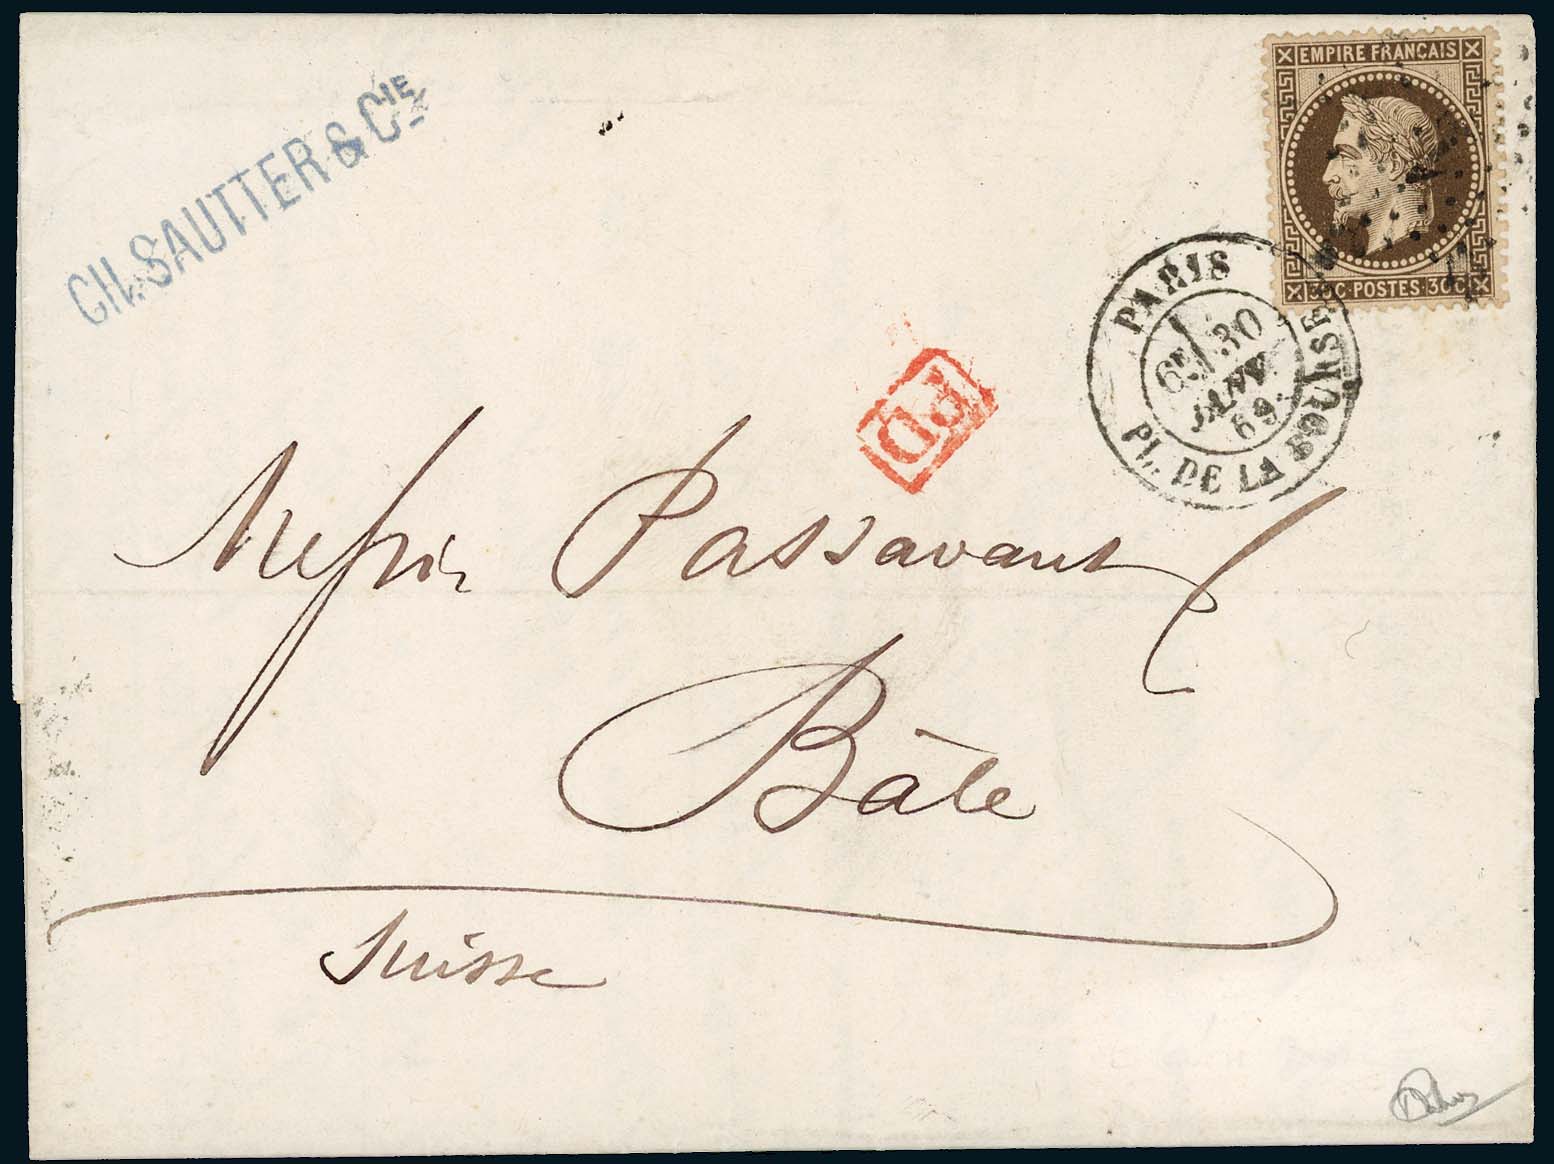 CH. SAUTTER & CIE
EMPIRE FRANÇAIS
30C·POSTES·30C
PARIS
6E 30
JANV.
69
PL. DE LA BOURSE
PD
Messrs Passavant &
Bâle
Suisse